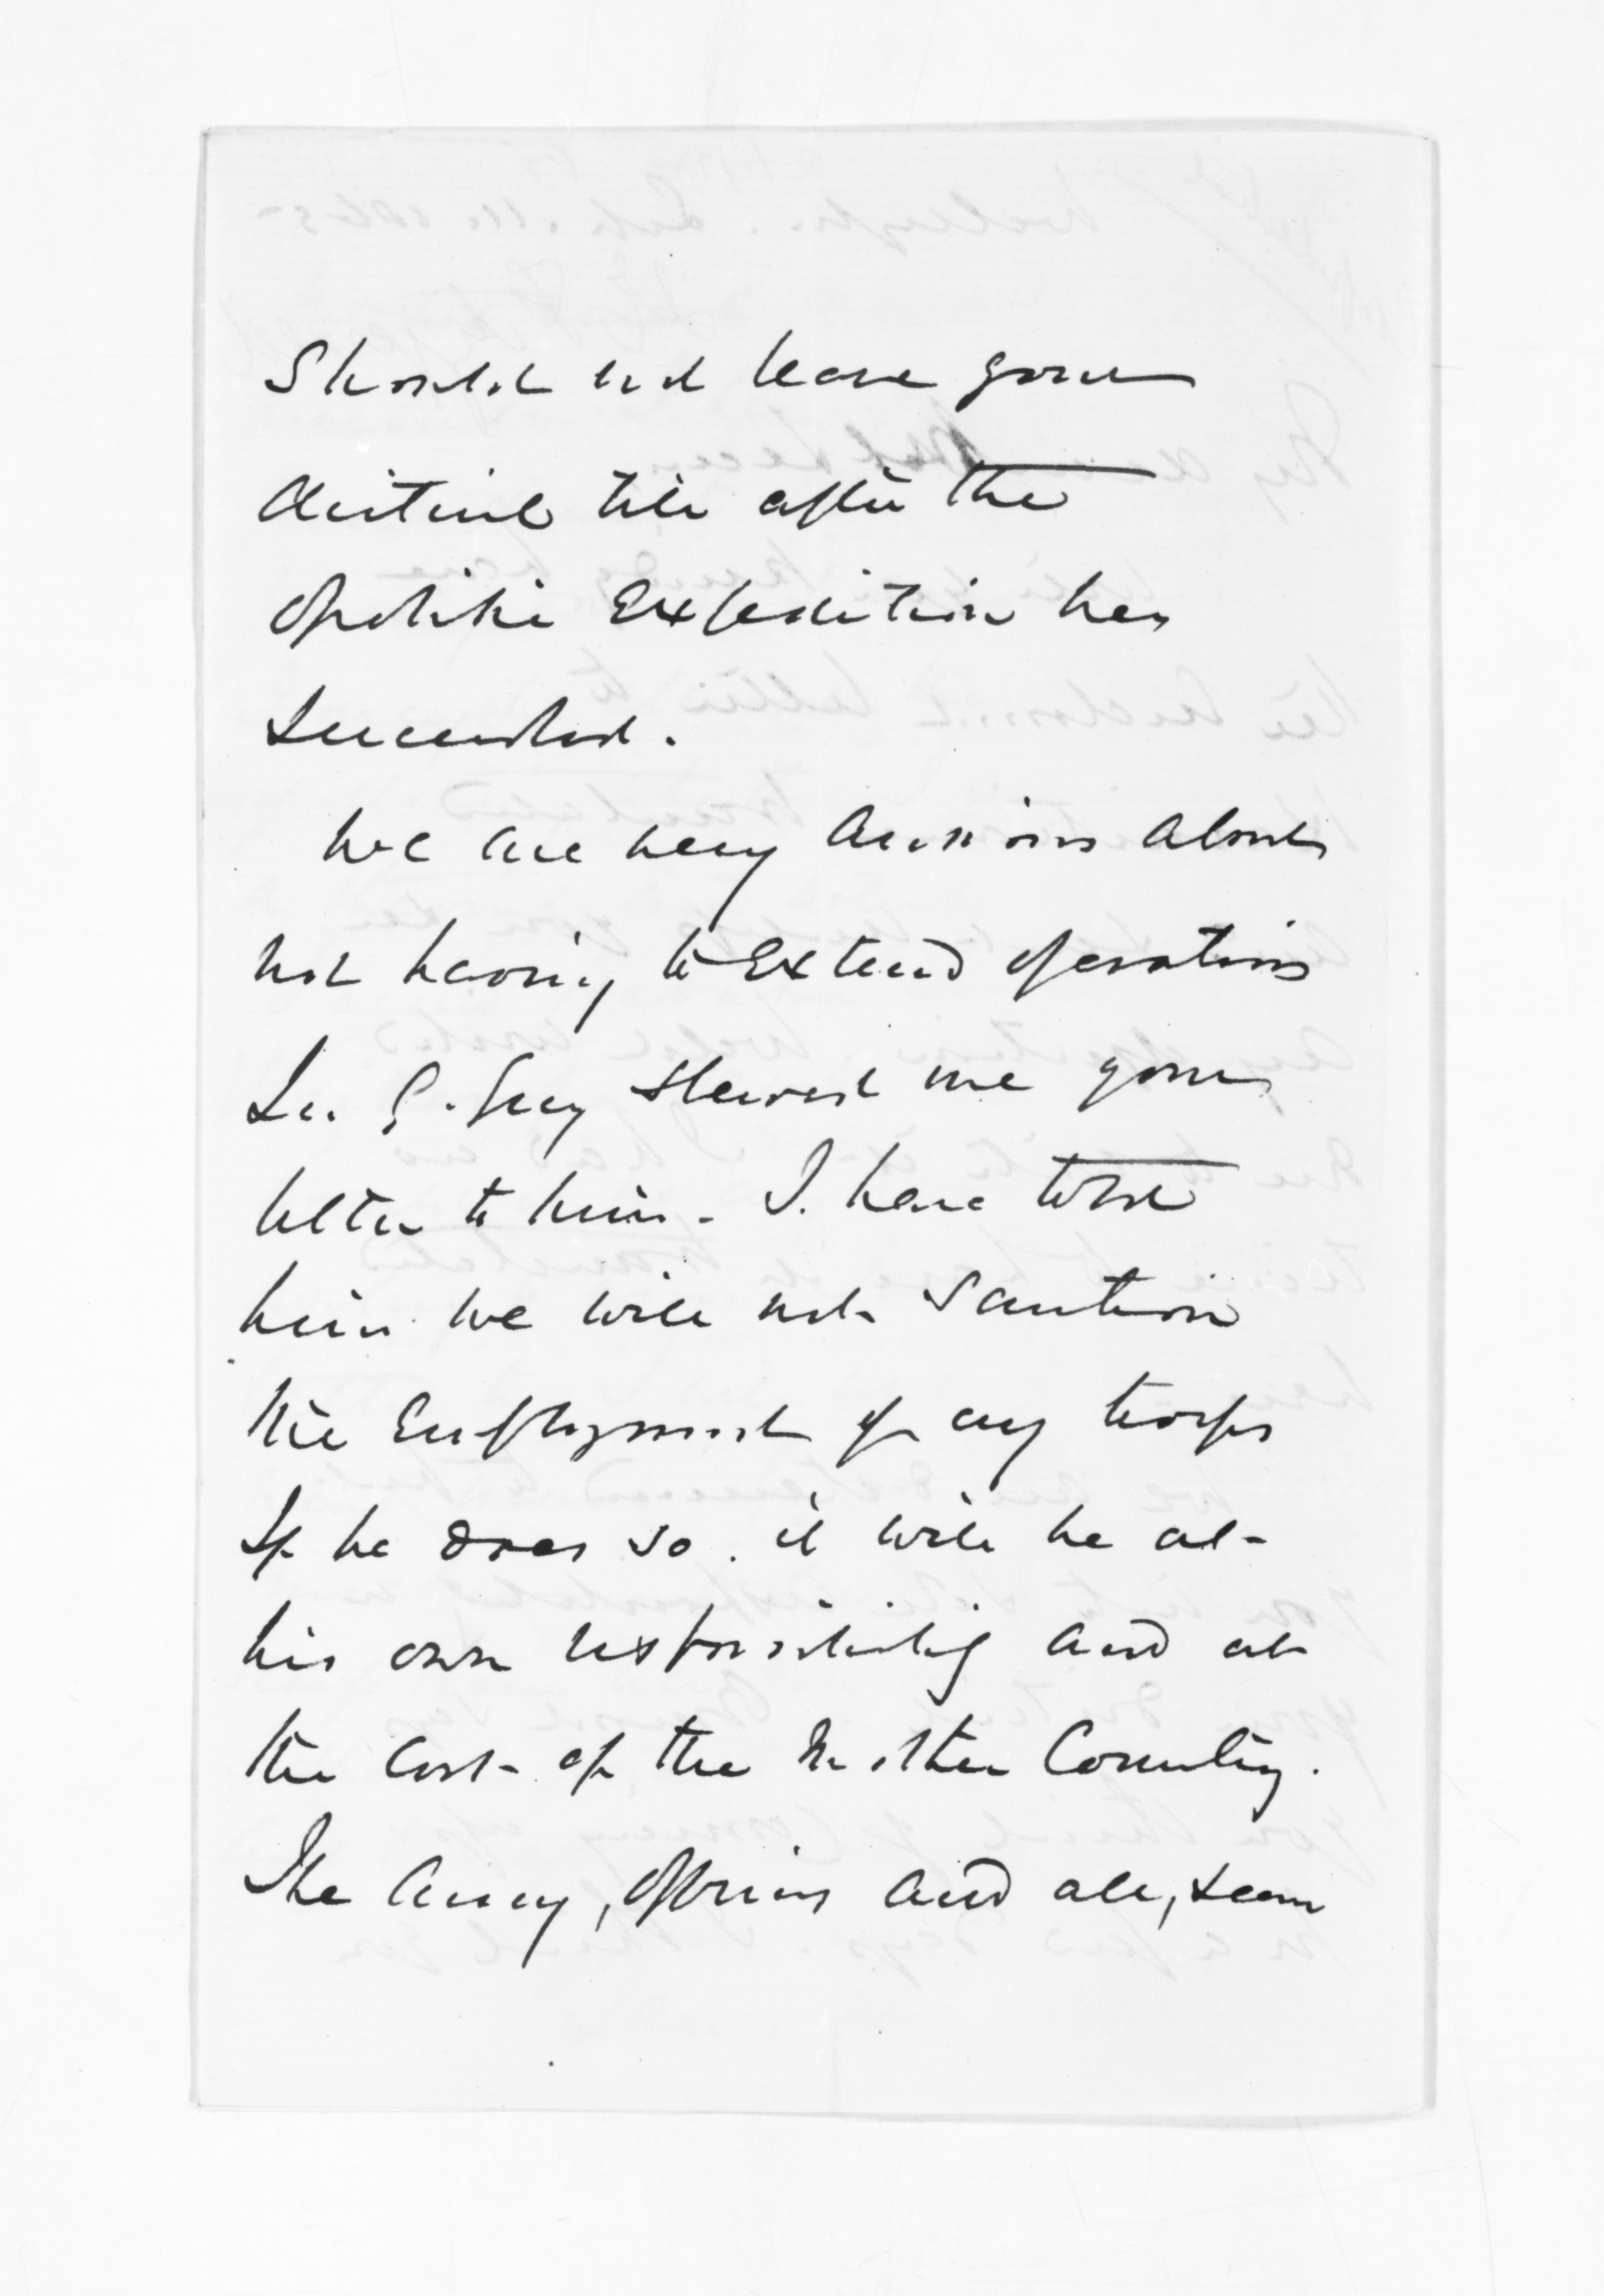 should not leave your
district till after the
Opotiki Expedition has
succeeded.
We are very anxious about
not having to extend operations
Sir G. Grey shewed me your
letter to him - I have told
him we will not sanction
the Employment of any troops
If he does so. it will be at
his own responsibility and at
the cost of the Mother Country.
The Army, officers and all, seem